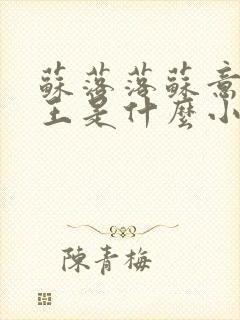 蘇落落蘇意
王是什麼小
陳青梅